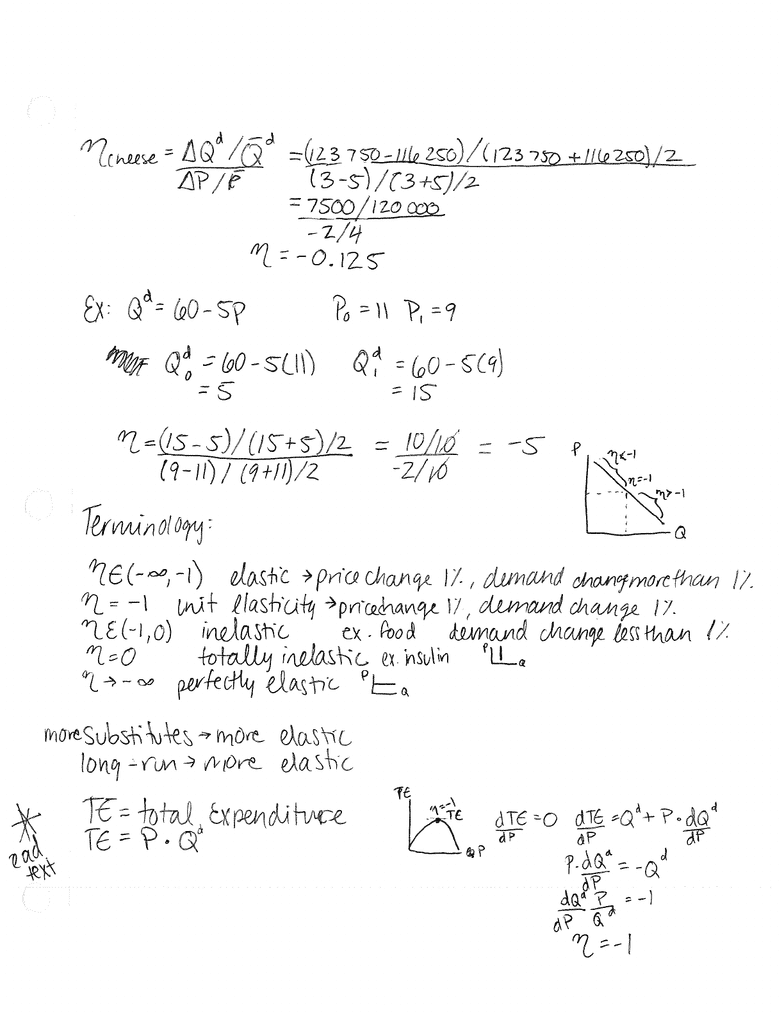 η cheese = ΔQᵈ/Q̄ᵈ = (123 750 - 116 250)/(123 750 + 116 250)/2
ΔP/P̄ (3-5)/(3+5)/2
= 7500/120 000
-2/4
η = -0.125
Ex: Qᵈ = 60-5P P₀ = 11 P₁ = 9
Q₀ᵈ = 60-5(11) Q₁ᵈ = 60-5(9)
= 5 = 15
η = (15-5)/(15+5)/2 = 10/10 = -5
(9-11)/(9+11)/2 -2/10
P η<-1 η=-1 η>-1 Q
Terminology:
η∈(-∞,-1) elastic → price change 1%, demand change more than 1%.
η = -1 unit elasticity → price change 1%, demand change 1%.
ηε(-1,0) inelastic ex. food demand change less than 1%.
η=0 totally inelastic ex. insulin P Q
η→-∞ perfectly elastic P Q
more substitutes → more elastic
long-run → more elastic
TE = total expenditure
TE = P·Qᵈ
read text
TE η=-1 TE P
dTE/dP = 0 dTE/dP = Qᵈ + P·dQᵈ/dP
P·dQᵈ/dP = -Qᵈ
dQᵈ/dP P/Qᵈ = -1
η = -1